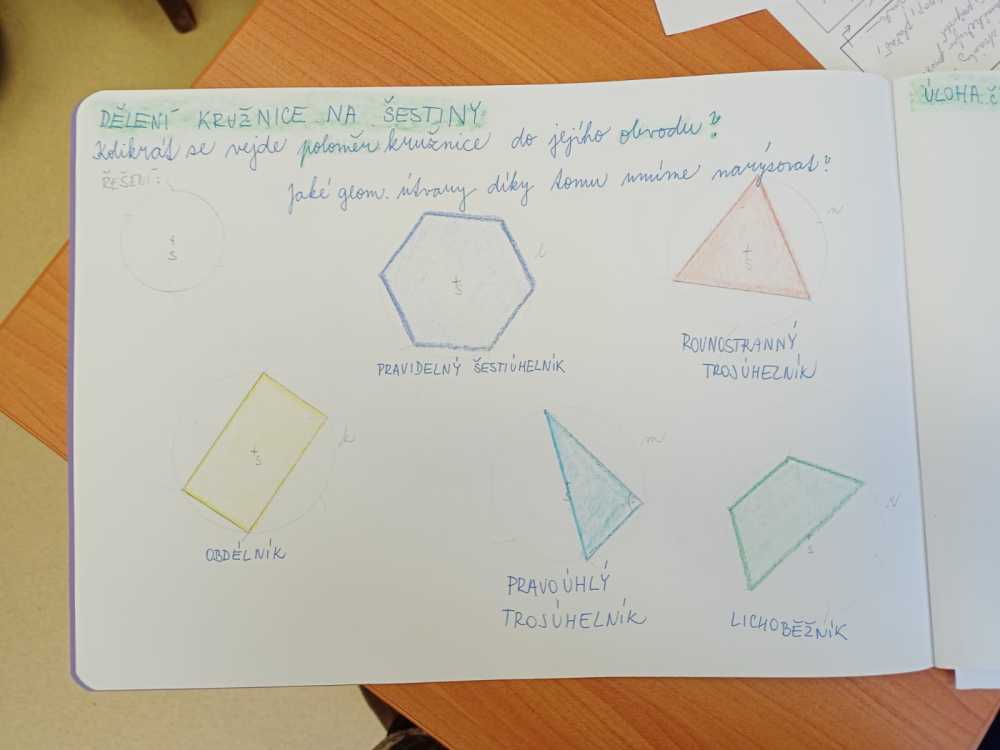 DĚLENÍ KRUŽNICE NA ŠESTINY
Kolikrát se vejde poloměr kružnice do jejího obvodu?
ŘEŠENÍ:
Jaké geom. útvary díky tomu umíme narýsovat?
S
S
l
PRAVIDELNÝ ŠESTIÚHELNÍK
S
n
ROVNOSTRANNÝ
TROJÚHELNÍK
S
k
OBDÉLNÍK
S
m
PRAVOÚHLÝ
TROJÚHELNÍK
S
LICHOBĚŽNÍK
ÚLOHA Č